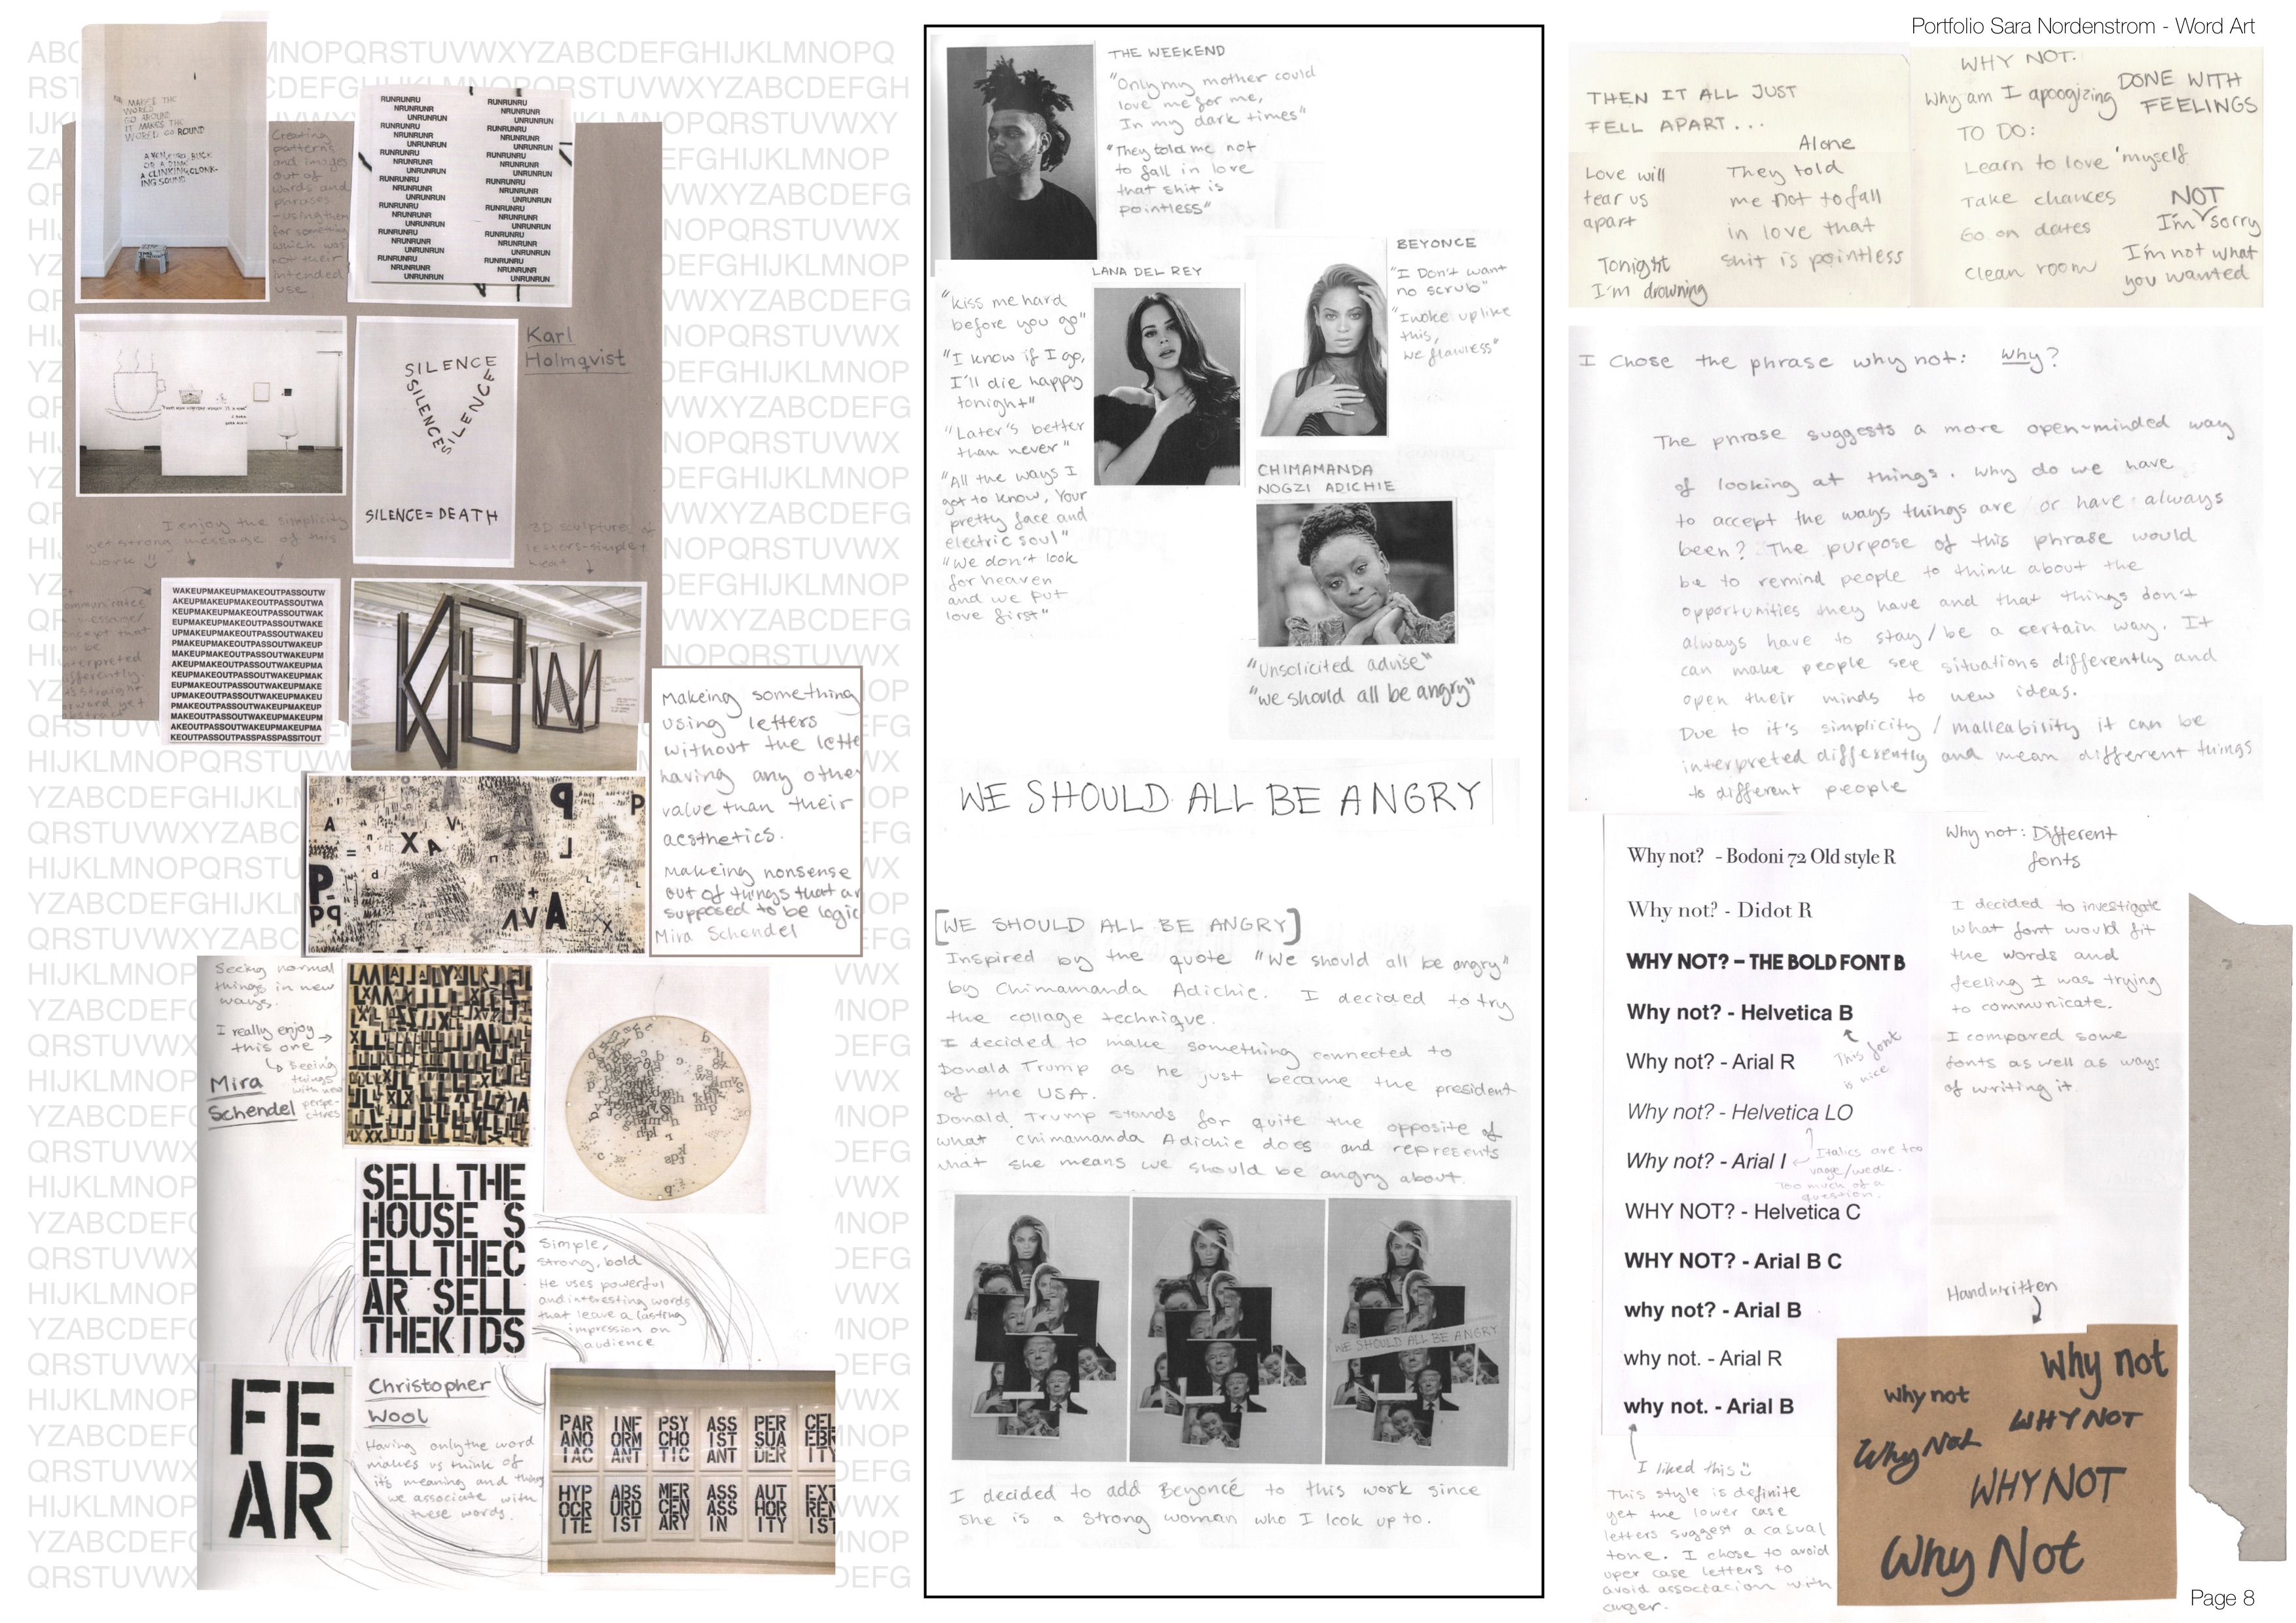 Portfolio Sara Nordenstrom - Word Art
MAKES THE
WORLD
GO AROUND
IT MAKES THE
WORLD GO ROUND
A YEN, EURO, BUCK
OR A DIME
A CLINKING, CLONK-
ING SOUND
Creating
patterns
and images
out of
words and
phrases
-using them
for something
which was
not their
intended
use
RUNRUNRU RUNRUNRU
NRUNRUNR NRUNRUNR
UNRUNRUN UNRUNRUN
RUNRUNRU RUNRUNRU
NRUNRUNR NRUNRUNR
UNRUNRUN UNRUNRUN
RUNRUNRU RUNRUNRU
NRUNRUNR NRUNRUNR
UNRUNRUN UNRUNRUN
RUNRUNRU RUNRUNRU
NRUNRUNR NRUNRUNR
UNRUNRUN UNRUNRUN
RUNRUNRU RUNRUNRU
NRUNRUNR NRUNRUNR
UNRUNRUN UNRUNRUN
RUNRUNRU RUNRUNRU
NRUNRUNR NRUNRUNR
UNRUNRUN UNRUNRUN
RUNRUNRU RUNRUNRU
NRUNRUNR NRUNRUNR
UNRUNRUN UNRUNRUN
Karl
Holmqvist
SILENCE
SILENCE
SILENCE
SILENCE = DEATH
I enjoy the simplicity
yet strong message of this
work
3D sculpture of
letters-simple+
neat
WAKEUPMAKEUPMAKEOUTPASSOUTW
AKEUPMAKEUPMAKEOUTPASSOUTWA
KEUPMAKEUPMAKEOUTPASSOUTWAK
EUPMAKEUPMAKEOUTPASSOUTWAKE
UPMAKEUPMAKEOUTPASSOUTWAKEU
PMAKEUPMAKEOUTPASSOUTWAKEUP
MAKEUPMAKEOUTPASSOUTWAKEUPM
AKEUPMAKEOUTPASSOUTWAKEUPMA
KEUPMAKEOUTPASSOUTWAKEUPMAK
EUPMAKEOUTPASSOUTWAKEUPMAKE
UPMAKEOUTPASSOUTWAKEUPMAKEU
PMAKEOUTPASSOUTWAKEUPMAKEUP
MAKEOUTPASSOUTWAKEUPMAKEUPM
AKEOUTPASSOUTWAKEUPMAKEUPMA
KEOUTPASSOUTPASSPASSPASSITOUT
Makeing something
using letters
without the lette
having any othe
value than their
aesthetics.
Makeing nonsense
out of things that ar
supposed to be logic
Mira Schendel
Seeing normal
things in new
ways.
I really enjoy
this one
Seeing
things
with new
perspe-
ctives
Mira
Schendel
SELLTHE
HOUSE S
ELLTHEC
AR SELL
THEKIDS
Simple,
strong, bold
He uses powerful
and interesting words
that leave a lasting
impression on
audience
FE
AR
Christopher
Wool
Having only the word
makes us think of
it's meaning and things
we associate with
these words.
PAR INF PSY ASS PER CEL
ANO ORM CHO IST SUA EBR
IAC ANT TIC ANT DER ITY
HYP ABS MER ASS AUT EXT
OCR URD CEN ASS HOR REM
ITE IST ARY IN ITY IST
THE WEEKEND
"Only my mother could
love me for me,
In my dark times"
"They told me not
to fall in love
that shit is
pointless"
LANA DEL REY
"kiss me hard
before you go"
"I know if I go,
I'll die happy
tonight"
"Later's better
than never"
"All the ways I
got to know, Your
pretty face and
electric soul"
"We don't look
for heaven
and we put
love first"
BEYONCE
"I Don't want
no scrub"
"I woke up like
this,
we flawless"
CHIMAMANDA
NOGZI ADICHIE
"Unsolicited advise"
"we should all be angry"
WE SHOULD ALL BE ANGRY
[WE SHOULD ALL BE ANGRY]
Inspired by the quote "We should all be angry"
by Chimamanda Adichie. I decided to try
the collage technique.
I decided to make something connected to
Donald Trump as he just became the president
of the USA.
Donald Trump stands for quite the opposite of
what Chimamanda Adichie does and represents
what she means we should be angry about.
WE SHOULD ALL BE ANGRY
I decided to add Beyoncé to this work since
she is a strong woman who I look up to.
THEN IT ALL JUST
FELL APART...
Alone
Love will
tear us
apart
They told
me not to fall
in love that
shit is pointless
Tonight
I'm drowning
WHY NOT.
Why am I apoogizing
DONE WITH
FEELINGS
TO DO:
Learn to love 'myself
Take chances
Go on dates
clean room
NOT
I'm sorry
I'm not what
you wanted
I chose the phrase why not: Why?
The phrase suggests a more open-minded way
of looking at things. Why do we have
to accept the ways things are or have always
been? The purpose of this phrase would
be to remind people to think about the
opportunities they have and that things don't
always have to stay/be a certain way. It
can make people see situations differently and
open their minds to new ideas.
Due to it's simplicity / malleability it can be
interpreted differently and mean different things
to different people
Why not? - Bodoni 72 Old style R
Why not? - Didot R
WHY NOT? – THE BOLD FONT B
Why not? - Helvetica B
This font
is nice
Why not? - Arial R
Why not? - Helvetica LO
Why not? - Arial I
Italics are too
vage/weak.
Too much of a
question.
WHY NOT? - Helvetica C
WHY NOT? - Arial B C
why not? - Arial B
why not. - Arial R
why not. - Arial B
I liked this
This style is definite
yet the lower case
letters suggest a casual
tone. I chose to avoid
uper case letters to
avoid associacion with
anger.
Why not: Different
fonts
I decided to investigate
what font would fit
the words and
feeling I was trying
to communicate.
I compared some
fonts as well as ways
of writing it.
Handwritten
Why not
Why not
WHY NOT
Why Not
WHY NOT
Why Not
Page 8